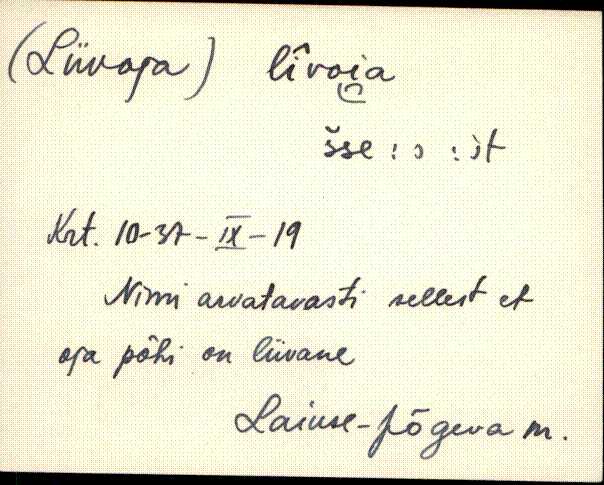 (Liivoja) lîvoi̯a
šse : s : st
Krt. 10-37-IX-19
Nimi arvatavasti sellest et
oja põhi on liivane
Laiuse-Jõgeva m.